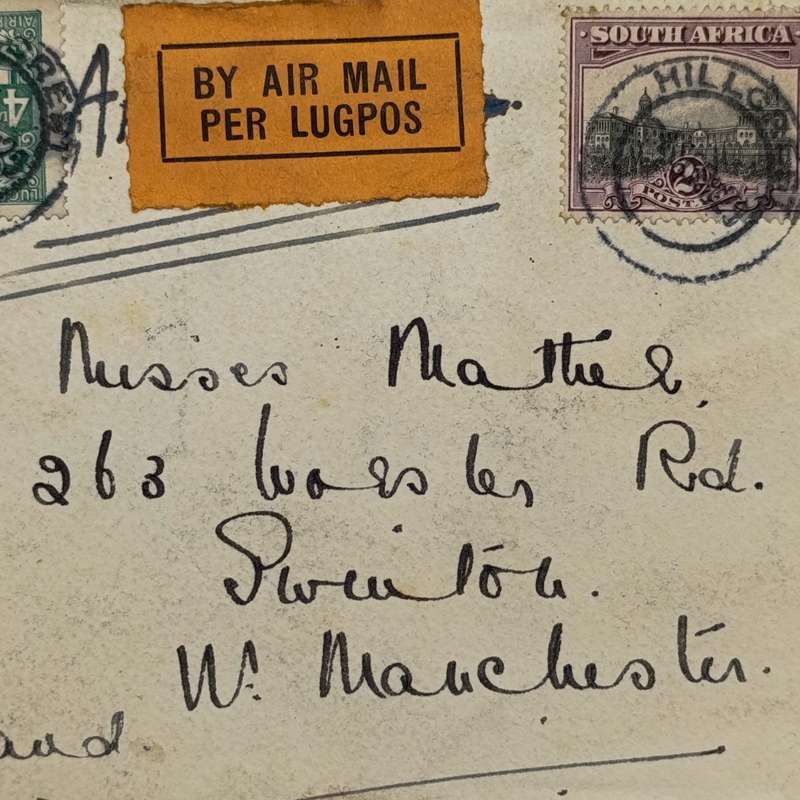 BY AIR MAIL
PER LUGPOS
SOUTH AFRICA
2
POSTAGE
4
Misses Mather,
263 Worsley Rd.
Swinton.
Nr. Manchester.